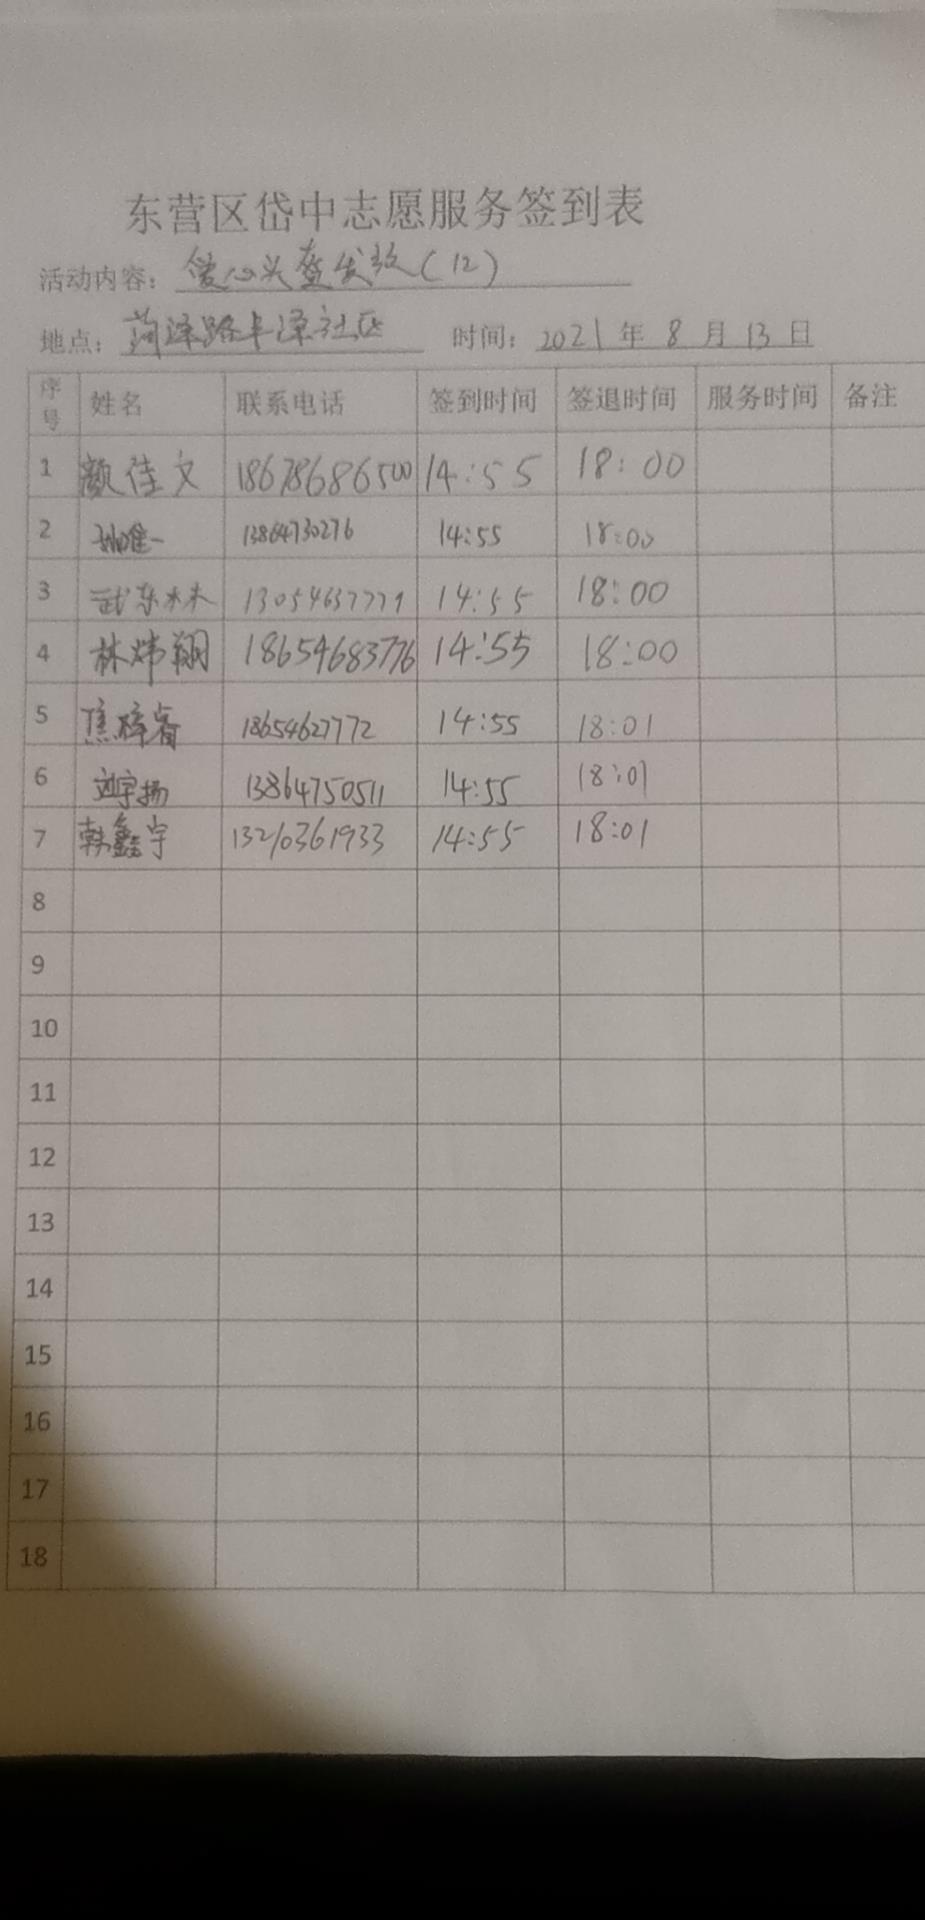 东营区岱中志愿服务签到表
活动内容: 爱心头盔发放(12)
地点: 菏泽路丰泽社区 时间: 2021 年 8 月 13 日
序号 姓名 联系电话 签到时间 签退时间 服务时间 备注
1 颜佳文 18678686500 14:55 18:00
2 孙唯一 13864730276 14:55 18:00
3 武东林 14:55 18:00
4 林炜翔 18654683776 14:55 18:00
5 焦梓睿 18654627772 14:55 18:01
6 刘宇扬 13864750511 14:55 18:01
7 韩鑫宇 13210361933 14:55 18:01
8
9
10
11
12
13
14
15
16
17
18